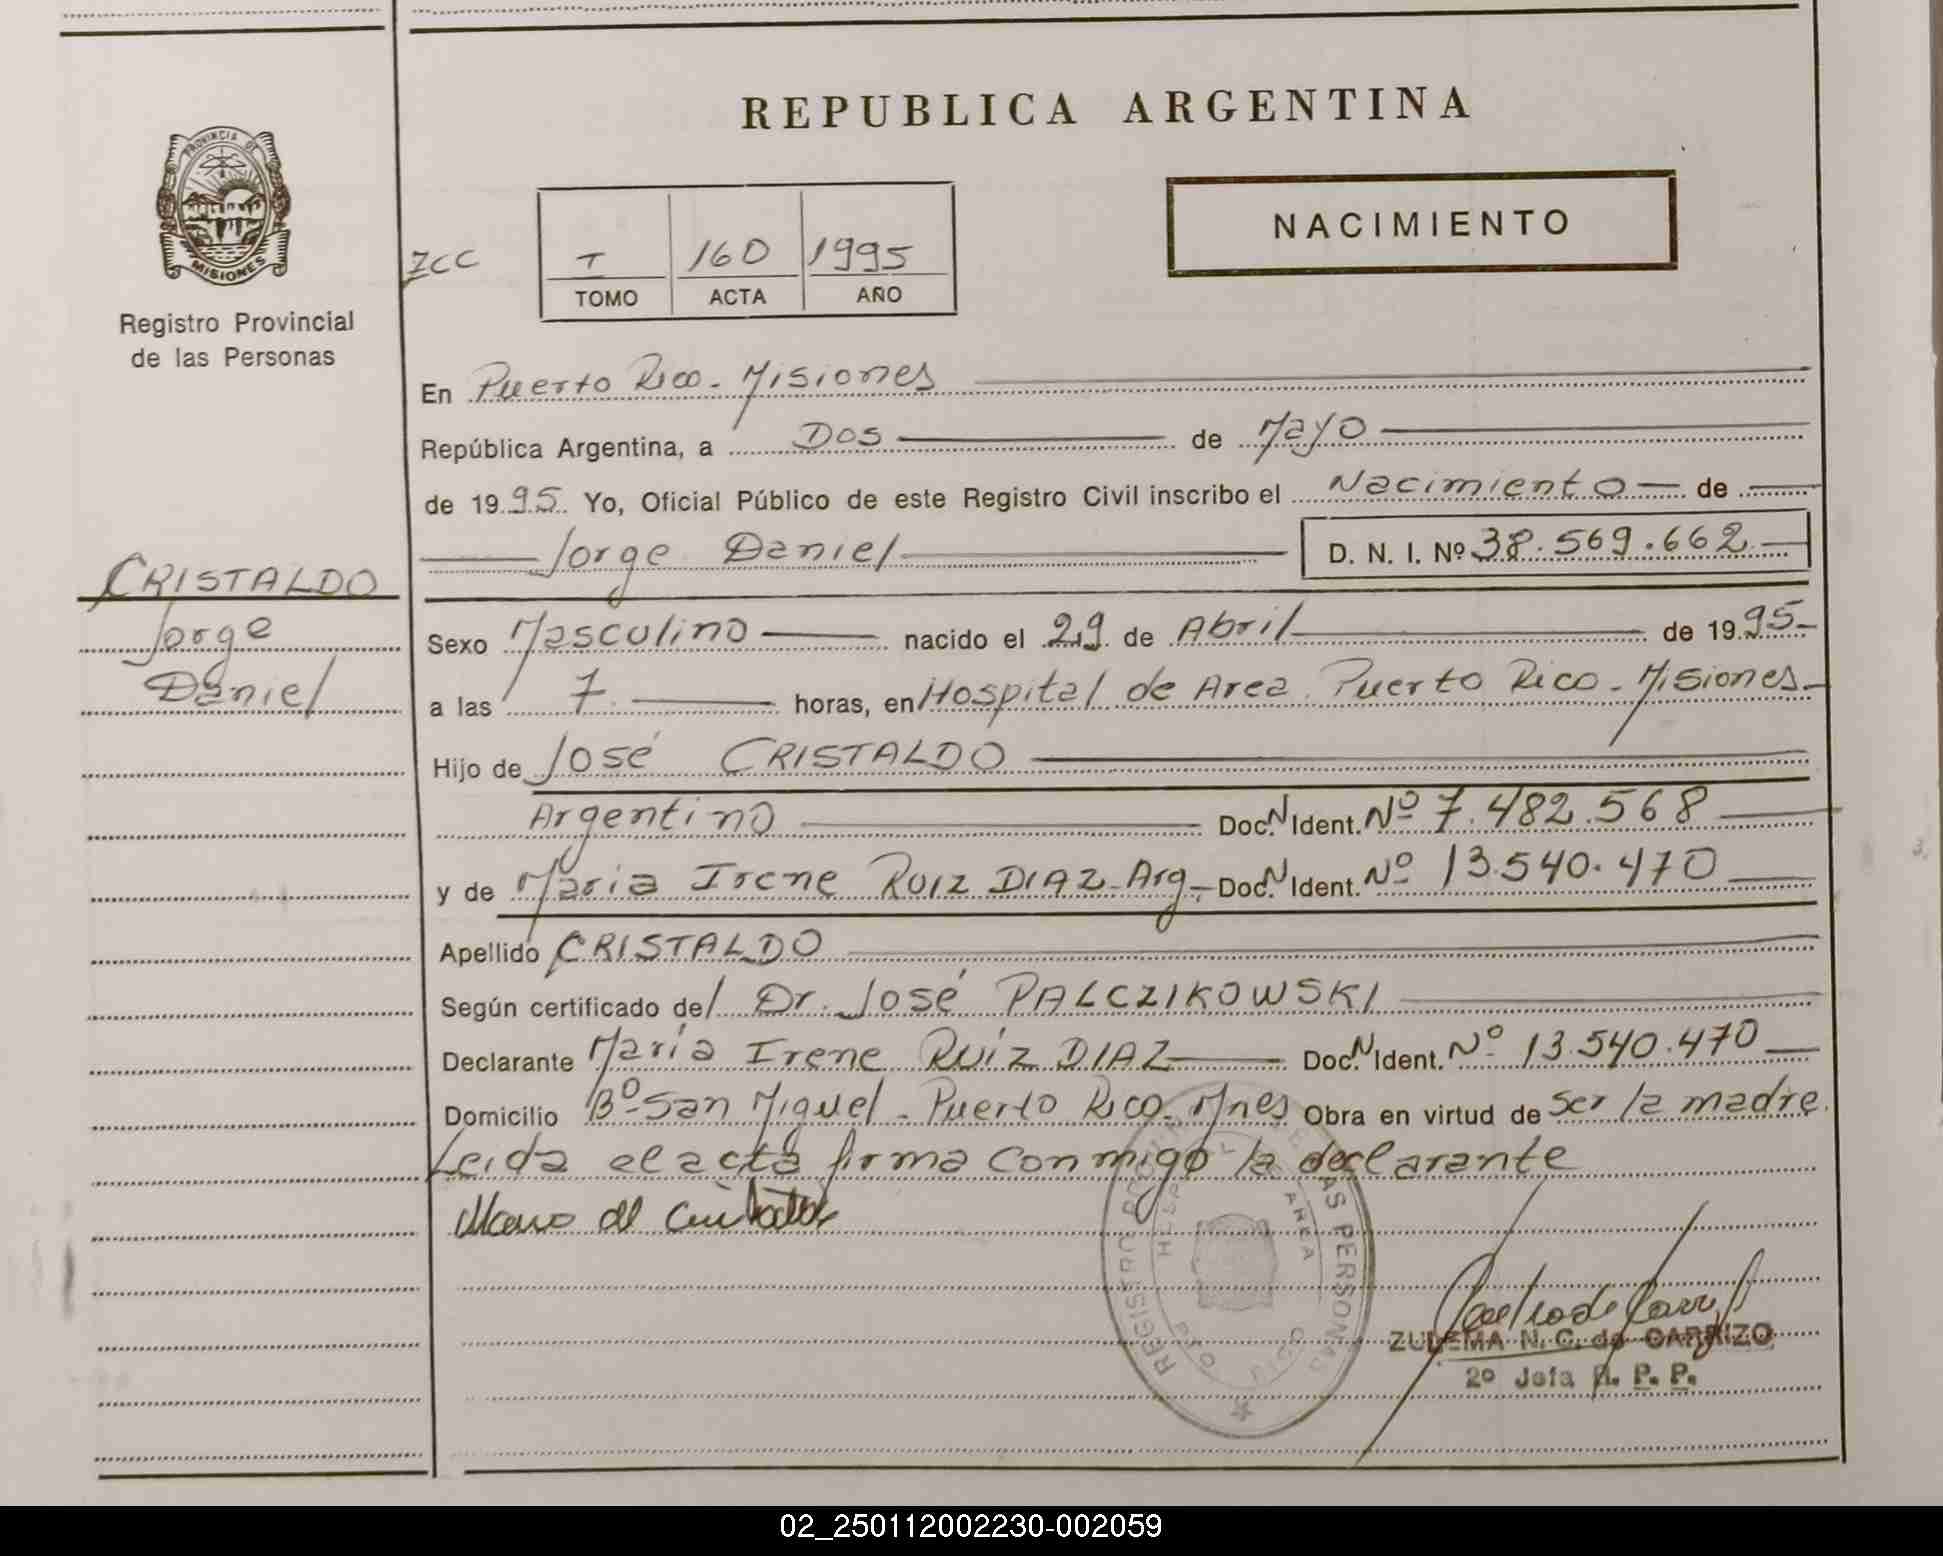 REPUBLICA ARGENTINA
PROVINCIA DE
MISIONES
Registro Provincial
de las Personas
NACIMIENTO
ZCC
T 160 1995
TOMO ACTA AÑO
En Puerto Rico - Misiones
República Argentina, a Dos de Mayo
de 1995. Yo, Oficial Público de este Registro Civil inscribo el Nacimiento de
Jorge Daniel D. N. I. Nº 38.569.662
CRISTALDO
Jorge
Daniel
Sexo Masculino nacido el 29 de Abril de 1995
a las 7 horas, en Hospital de Area. Puerto Rico - Misiones
Hijo de José CRISTALDO
Argentino Doc. N Ident. Nº 7.482.568
y de Maria Irene RUIZ DIAZ - Arg. - Doc. N Ident. Nº 13.540.470
Apellido CRISTALDO
Según certificado del Dr. José PALCZIKOWSKI
Declarante María Irene RUIZ DIAZ Doc. N Ident. Nº 13.540.470
Domicilio Bº San Miguel - Puerto Rico - Mnes Obra en virtud de ser la madre.
Leida el acta firma conmigo la declarante
REGISTRO PERSONAS
AREA
ZULEMA N. C. de CARRIZO
2º Jefa R. P. P.
02_250112002230-002059